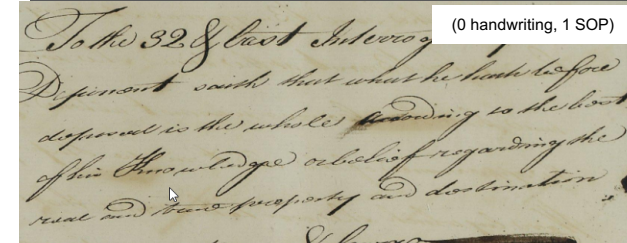 (0 handwriting, 1 SOP)
To the 32 & last Interrog
Deponent saith that what he hath before
deposed is the whole according to the best
of his Knowledge or belief regarding the
real and true property and destination